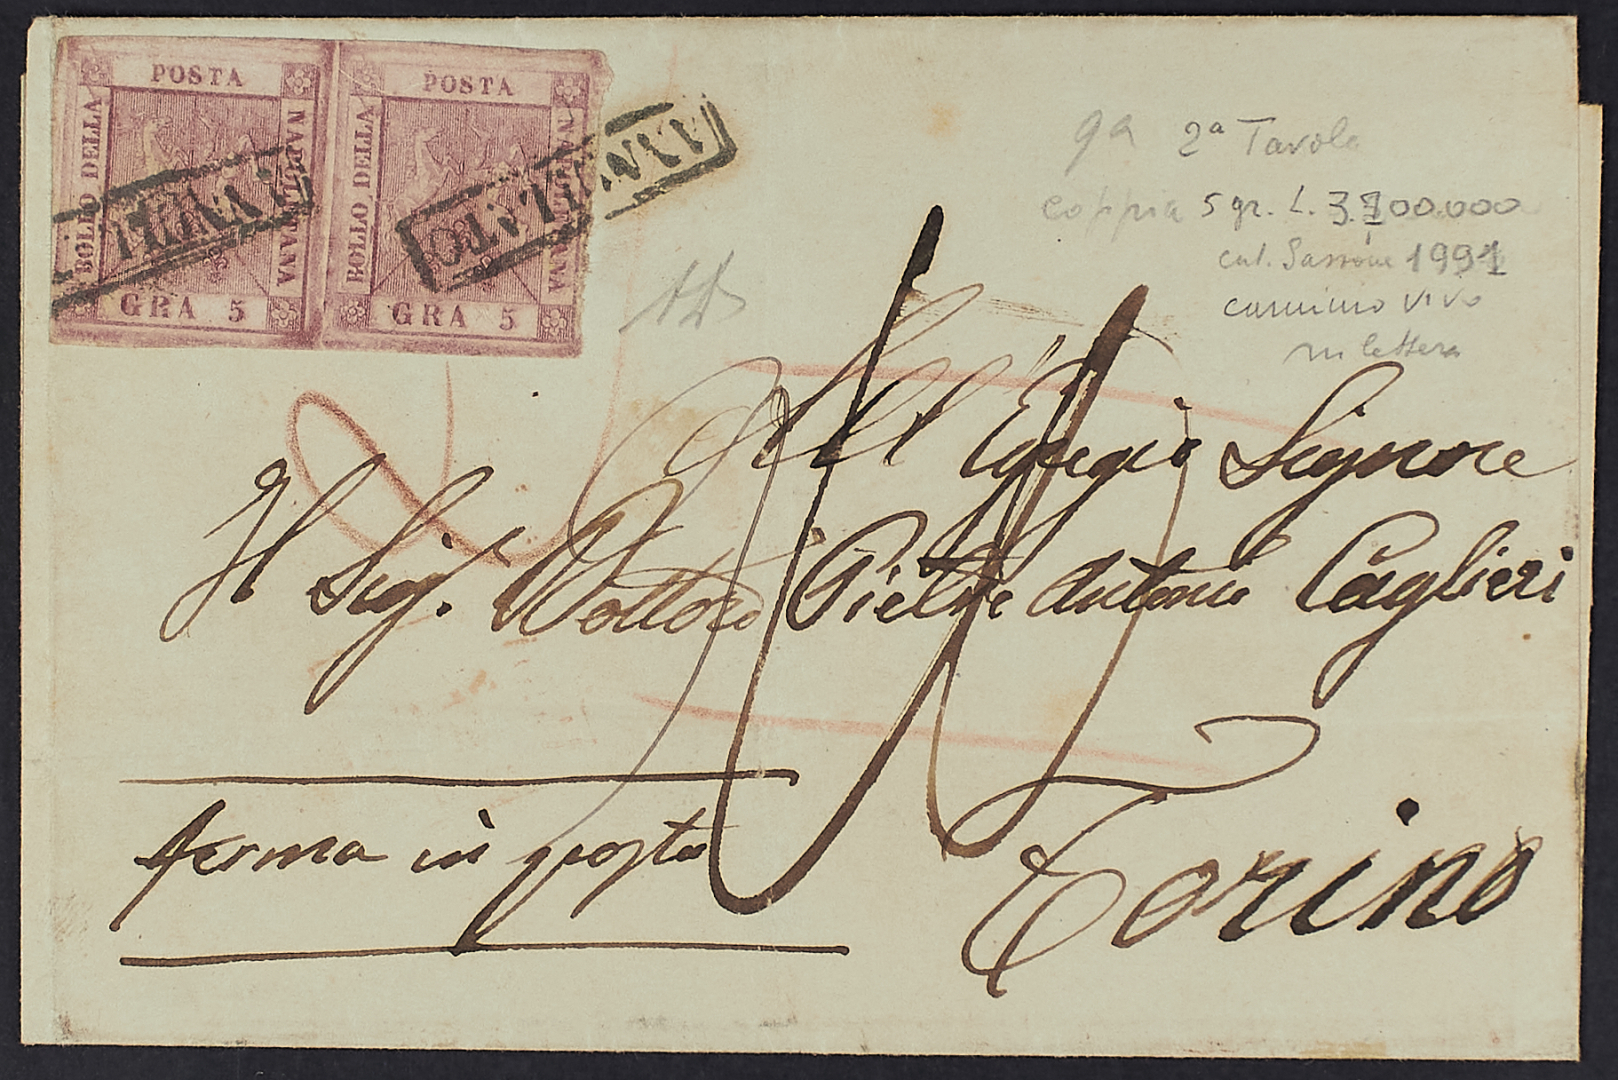 POSTA
BOLLO DELLA
NAPOLETANA
GRA 5
POSTA
BOLLO DELLA
NAPOLETANA
GRA 5
ANNULLATO
9a 2ª Tavola
coppia 5 gr. L. 3.700.000
cat. Sassone 1991
carminio vivo
su lettera
All' Egregio Signore
Il Sig. Dottore Pietro Antonio Caglieri
Torino
ferma in posta